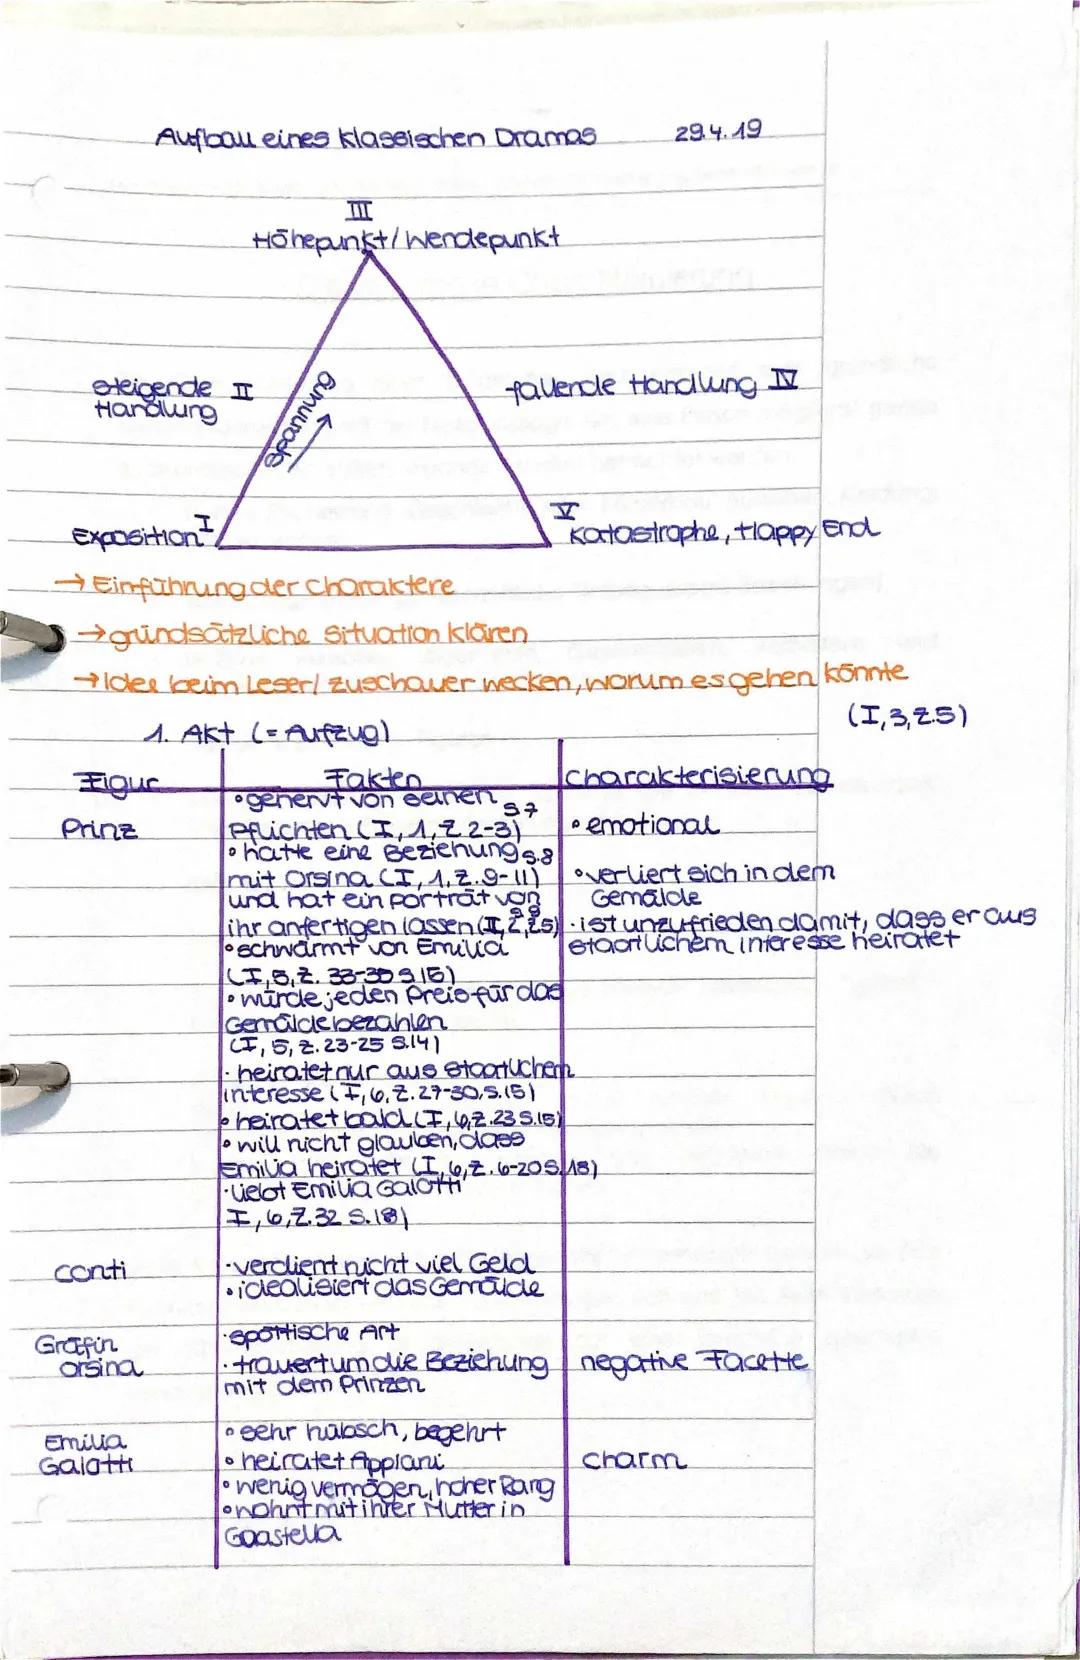 Aufbau eines klassischen Dramas 29.4.19
III
Höhepunkt/Wendepunkt
steigende II
Handlung
Spannung
fallende Handlung IV
Exposition I
V
Katastrophe, Happy End
→ Einführung der Charaktere
→ grundsätzliche Situation klären
→ Idee beim Leser/ Zuschauer wecken, worum es gehen könnte
(I,3,Z.5)
1. Akt (= Aufzug)
Figur Fakten Charakterisierung
Prinz
• genervt von seinen S.7
Pflichten (I, 1, Z 2-3)
• hatte eine Beziehung S.8
mit Orsina (I, 1, Z. 9-11)
und hat ein porträt von
ihr anfertigen lassen (I, 2, Z5)
• schwärmt von Emilia
(I, 5, Z. S.15)
• würde jeden Preis für das
Gemälde bezahlen
(I, 5, Z. 23-25 S.14)
• heiratet nur aus staatlichem
interesse (I, 6, Z. 27-30, S.15)
• heiratet bald (I, 6, Z. 23 S.15)
• will nicht glauben, dass
Emilia heiratet (I, 6, Z. 6-20 S.18)
• liebt Emilia Galotti
I, 6, Z. 32 S. 18)
• emotional
• verliert sich in dem
Gemälde
• ist unzufrieden damit, dass er aus
staatlichem interesse heiratet
Conti
• verdient nicht viel Geld
• idealisiert das Gemälde
Gräfin
Orsina
• spöttische Art
• trauert um die Beziehung
mit dem Prinzen
negative Facette
Emilia
Galotti
• sehr hübsch, begehrt
• heiratet Appiani
• wenig vermögen, hoher Rang
• wohnt mit ihrer Mutter in
Gaastella
charm